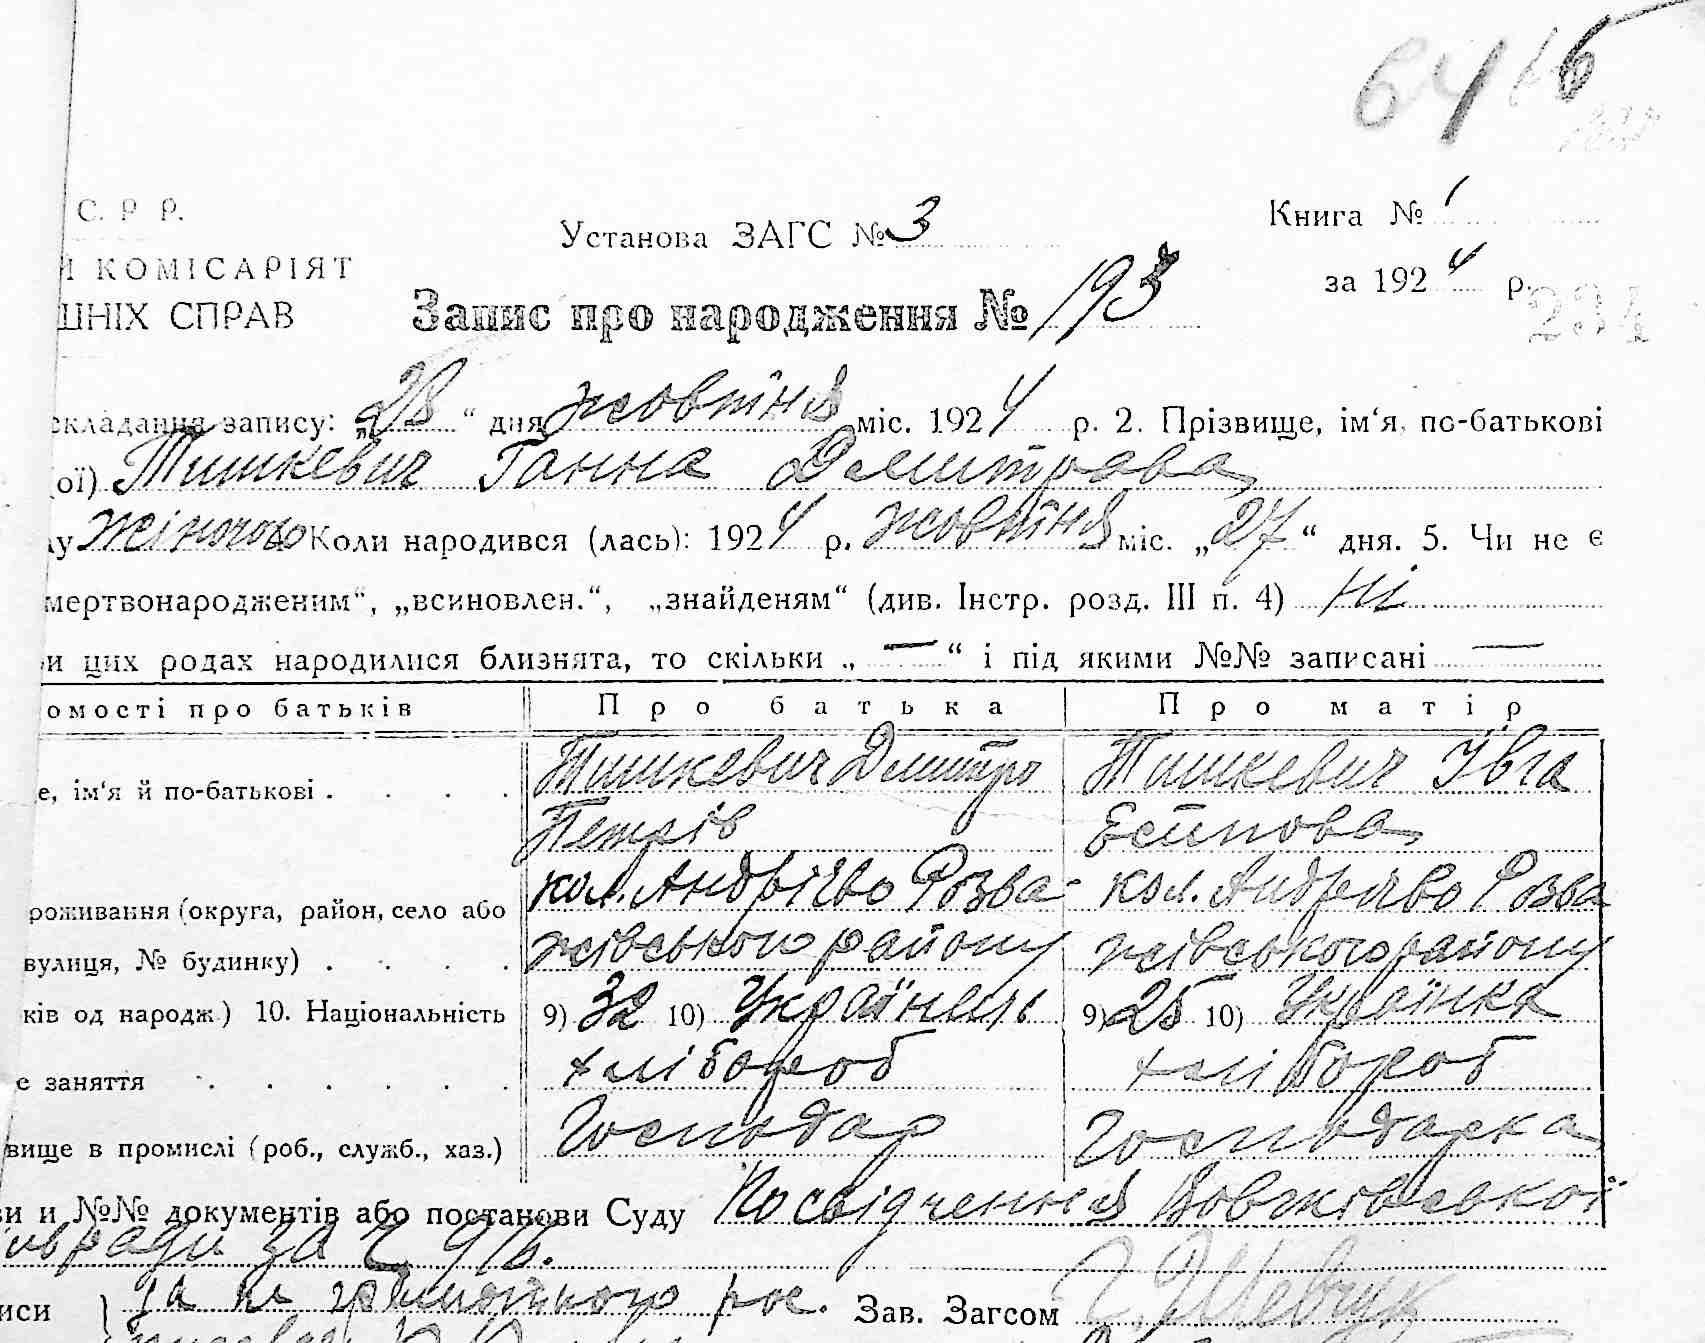 6466
С. Р Р.
Установа ЗАГС № 3
Книга № 1
Й КОМІСАРІЯТ
за 1924 р.
ШНІХ СПРАВ
Запис про народження № 193
234
складання запису: „28“ дня жовтня міс. 1924 р. 2. Прізвище, ім‘я, по-батькові
(ої) Тишкевич Ганна Дмитрова
у жіночою Коли народився (лась): 1924 р. жовтня міс. „27“ дня. 5. Чи не є
мертвонародженим“, „всиновлен.“, „знайденям“ (див. Інстр. розд. III п. 4) Ні
и цих родах народилися близнята, то скільки „—“ і під якими №№ записані —
омості про батьків Про батька Про матір
Тишкевич Дмитро Тишкевич Ївга
е, ім‘я й по-батькові .
Петрів Есипова
кол. Андріїво Розва- кол. Андреєво Розва
роживання (округа, район, село або
жівського району жівського району
вулиця, № будинку) .
ків од народж.) 10. Національність 9) 32 10) Українець 9) 25 10) Українка
е заняття хлібороб хлібороб
Господар Господарка
вище в промислі (роб., служб., хаз.)
ви и №№ документів або постанови Суду Посвідчення Вовжівської
за № 916.
иси } За не грамотного рос. Зав. Загсом Шевчук